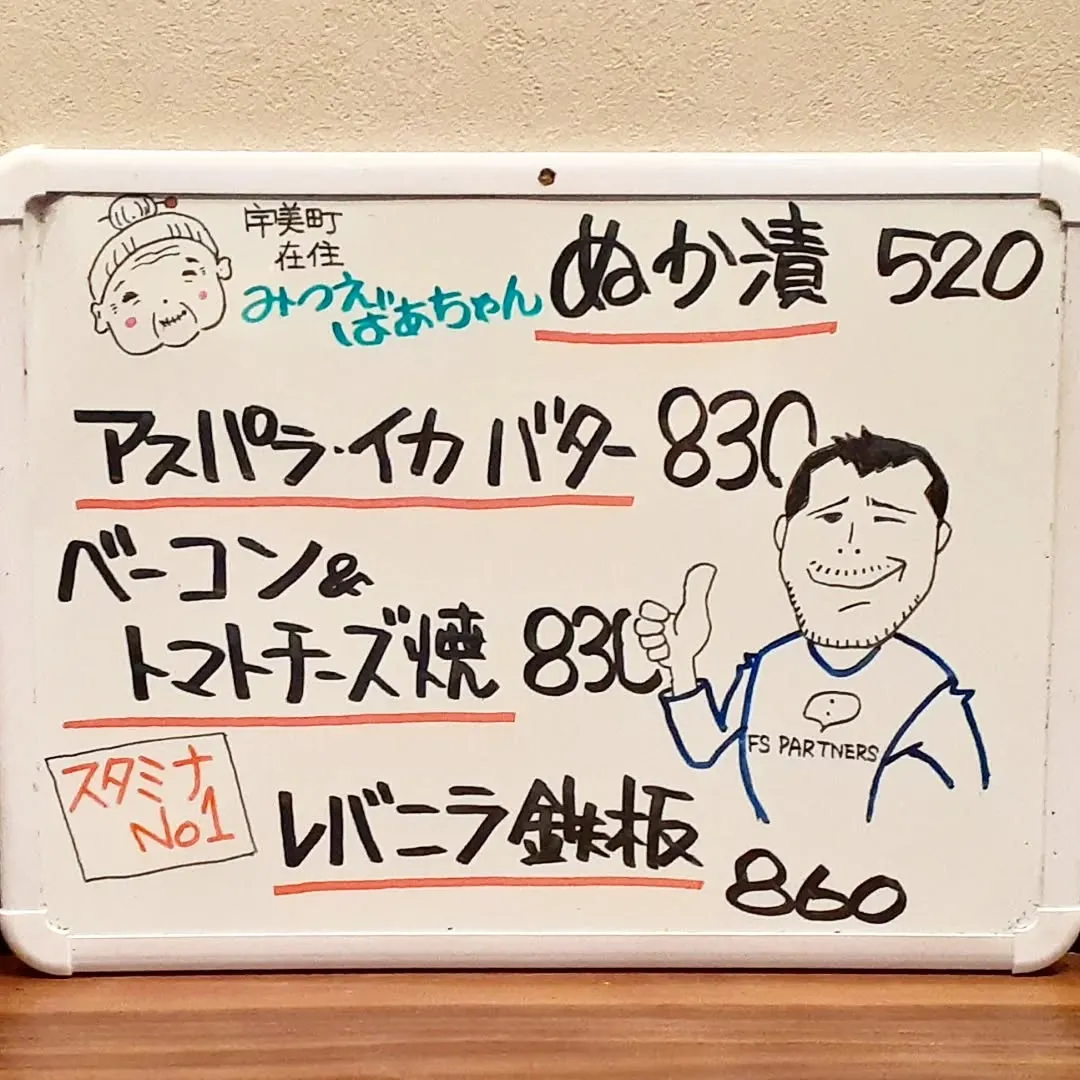 宇美町
在住
みつえ
ばあちゃん
ぬか漬 520
アスパラ・イカ バター 830
ベーコン&
トマトチーズ焼 830
FS PARTNERS
スタミナ
No1
レバニラ鉄板
860